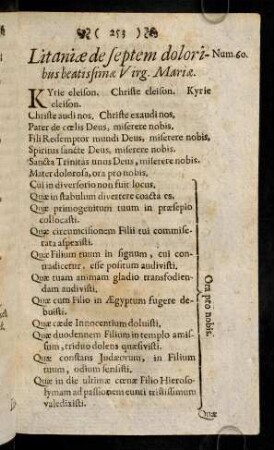 ( 253 )
Litaniæ de septem dolori- Num. 60.
bus beatissimæ Virg. Mariæ.
KYrie eleison. Christe eleison. Kyrie
eleison.
Christe audi nos, Christe exaudi nos,
Pater de cœlis Deus, miserere nobis.
Fili Redemptor mundi Deus, miserere nobis.
Spiritus sancte Deus, miserere nobis.
Sancta Trinitas unus Deus, miserere nobis.
Mater dolorosa, ora pro nobis.
Cui in diversorio non fuit locus,
Quæ in stabulum divertere coacta es.
Quæ primogenitum tuum in præsepio
collocasti.
Quæ circumcisionem Filii tui commise-
rata aspexisti.
Quæ Filium tuum in signum, cui con-
tradicetur, esse positum audivisti.
Quæ tuam animam gladio transfodien-
dam audivisti.
Quæ cum Filio in Ægyptum fugere de-
buisti.
Quæ cæde Innocentium doluisti,
Quæ duodennem Filium in templo amis-
sum, triduo dolens quæsivisti.
Quæ constans Judæorum, in Filium
tuum, odium sensisti.
Quæ in die ultimæ cœnæ Filio Hieroso-
lymam ad passionem eunti tristissimum
valedixisti.
Ora pro nobis.
Quæ